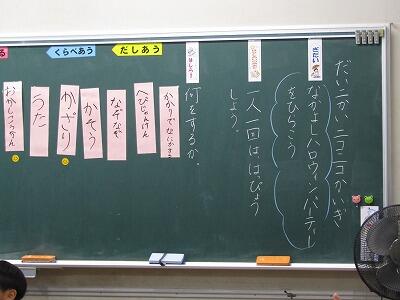 だい二かい ニコニコかいぎ
ぎだい
なかよしハロウィンパーティー
をひらこう
一人一回は、はっぴょう
しよう。
何をするか。
かかりでなにかする
へびじゃんけん
なぞなぞ
かそう
かざり
うた
おかしこうかん
だしあう
くらべあう
る